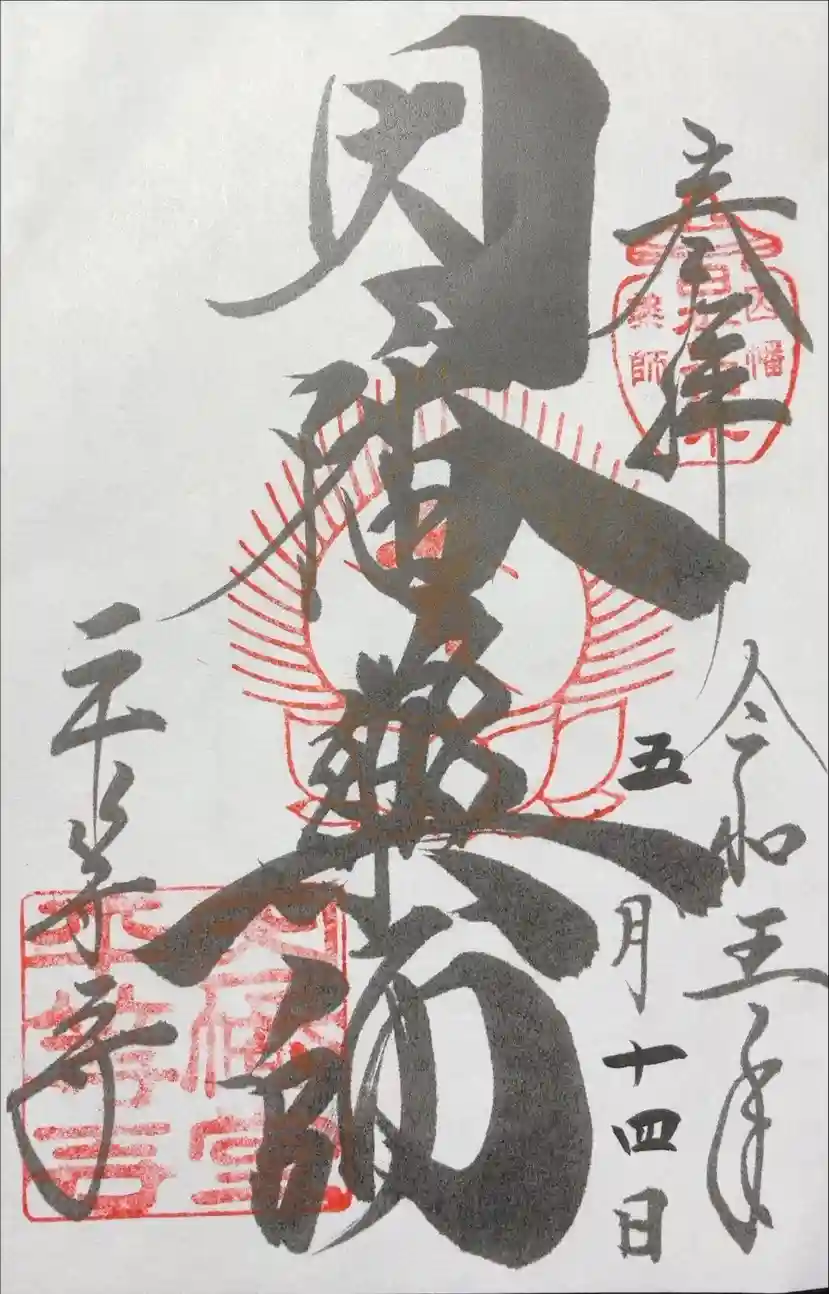 奉拝
因幡
薬師
令和五年
五月十四日
因幡薬師
平等寺
因幡堂
平等寺